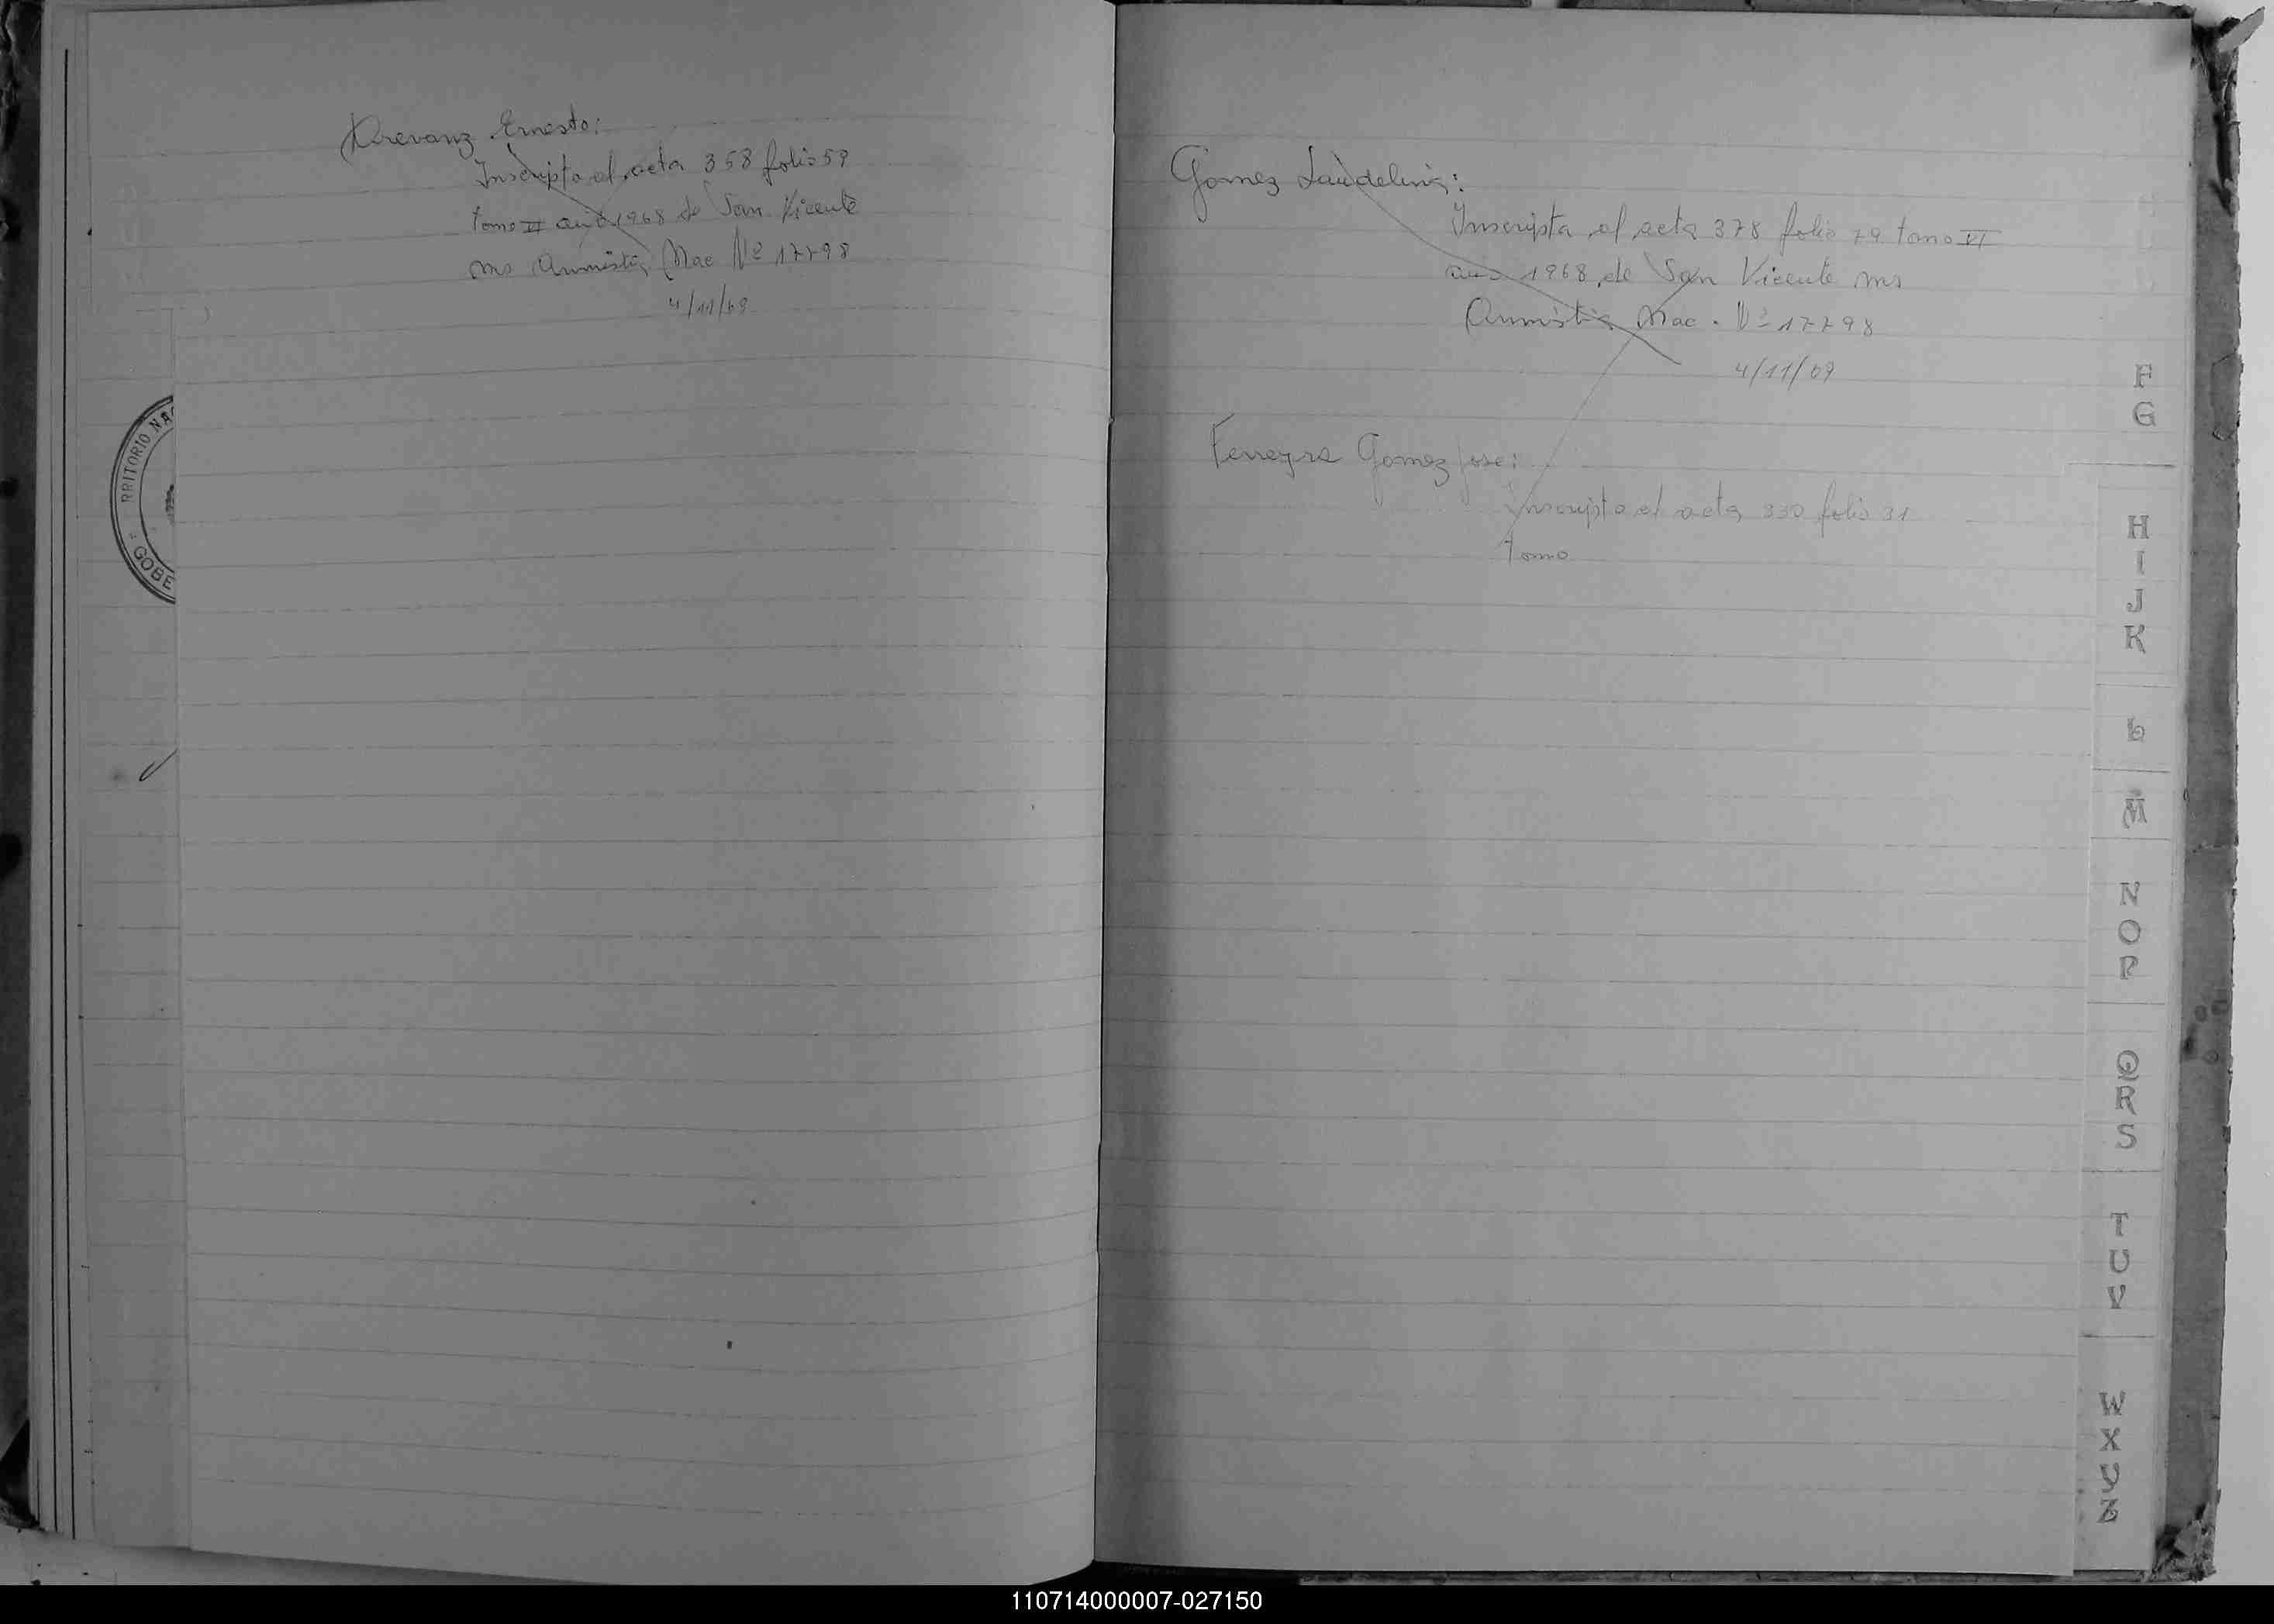 Drevanz Ernesto:
Inscripto al acta 358 folio 59
tomo VI año 1968 de San Vicente
ms Amnistia Nac Nº 17798
4/11/69
RRITORIO NAC
GOBE
Gomez Laudelina:
Inscripta al acta 378 folio 79 tomo VI
año 1968 de San Vicente ms
Amnistia Nac. Nº 17798
4/11/69
Ferreyra Gomez Jose:
Inscripto al acta 330 folio 31
tomo
F
G
H
I
J
K
L
M
N
O
P
Q
R
S
T
U
V
W
X
Y
Z
110714000007-027150